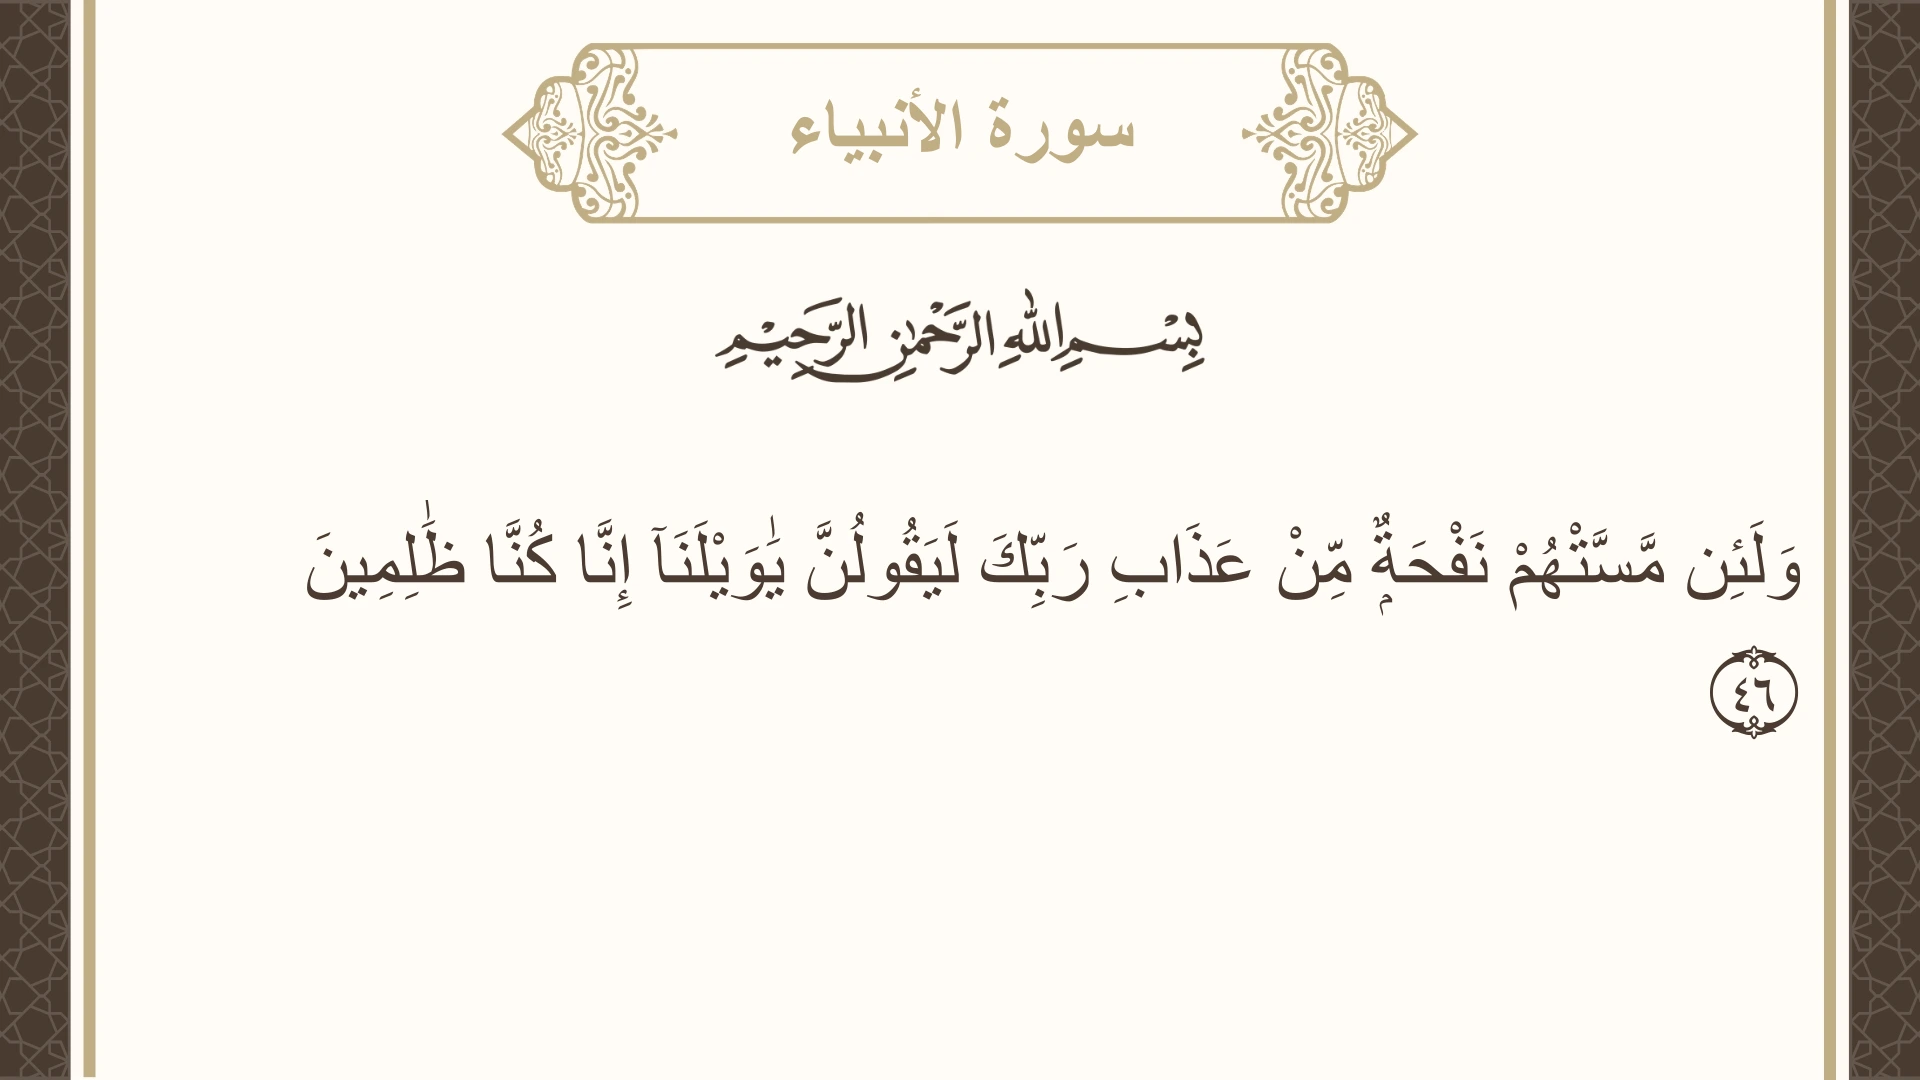 سورة الأنبياء
بِسْمِ اللهِ الرَّحْمٰنِ الرَّحِيْمِ
وَلَئِن مَّسَّتْهُمْ نَفْحَةٌۭ مِّنْ عَذَابِ رَبِّكَ لَيَقُولُنَّ يَٰوَيْلَنَآ إِنَّا كُنَّا ظَٰلِمِينَ
٤٦